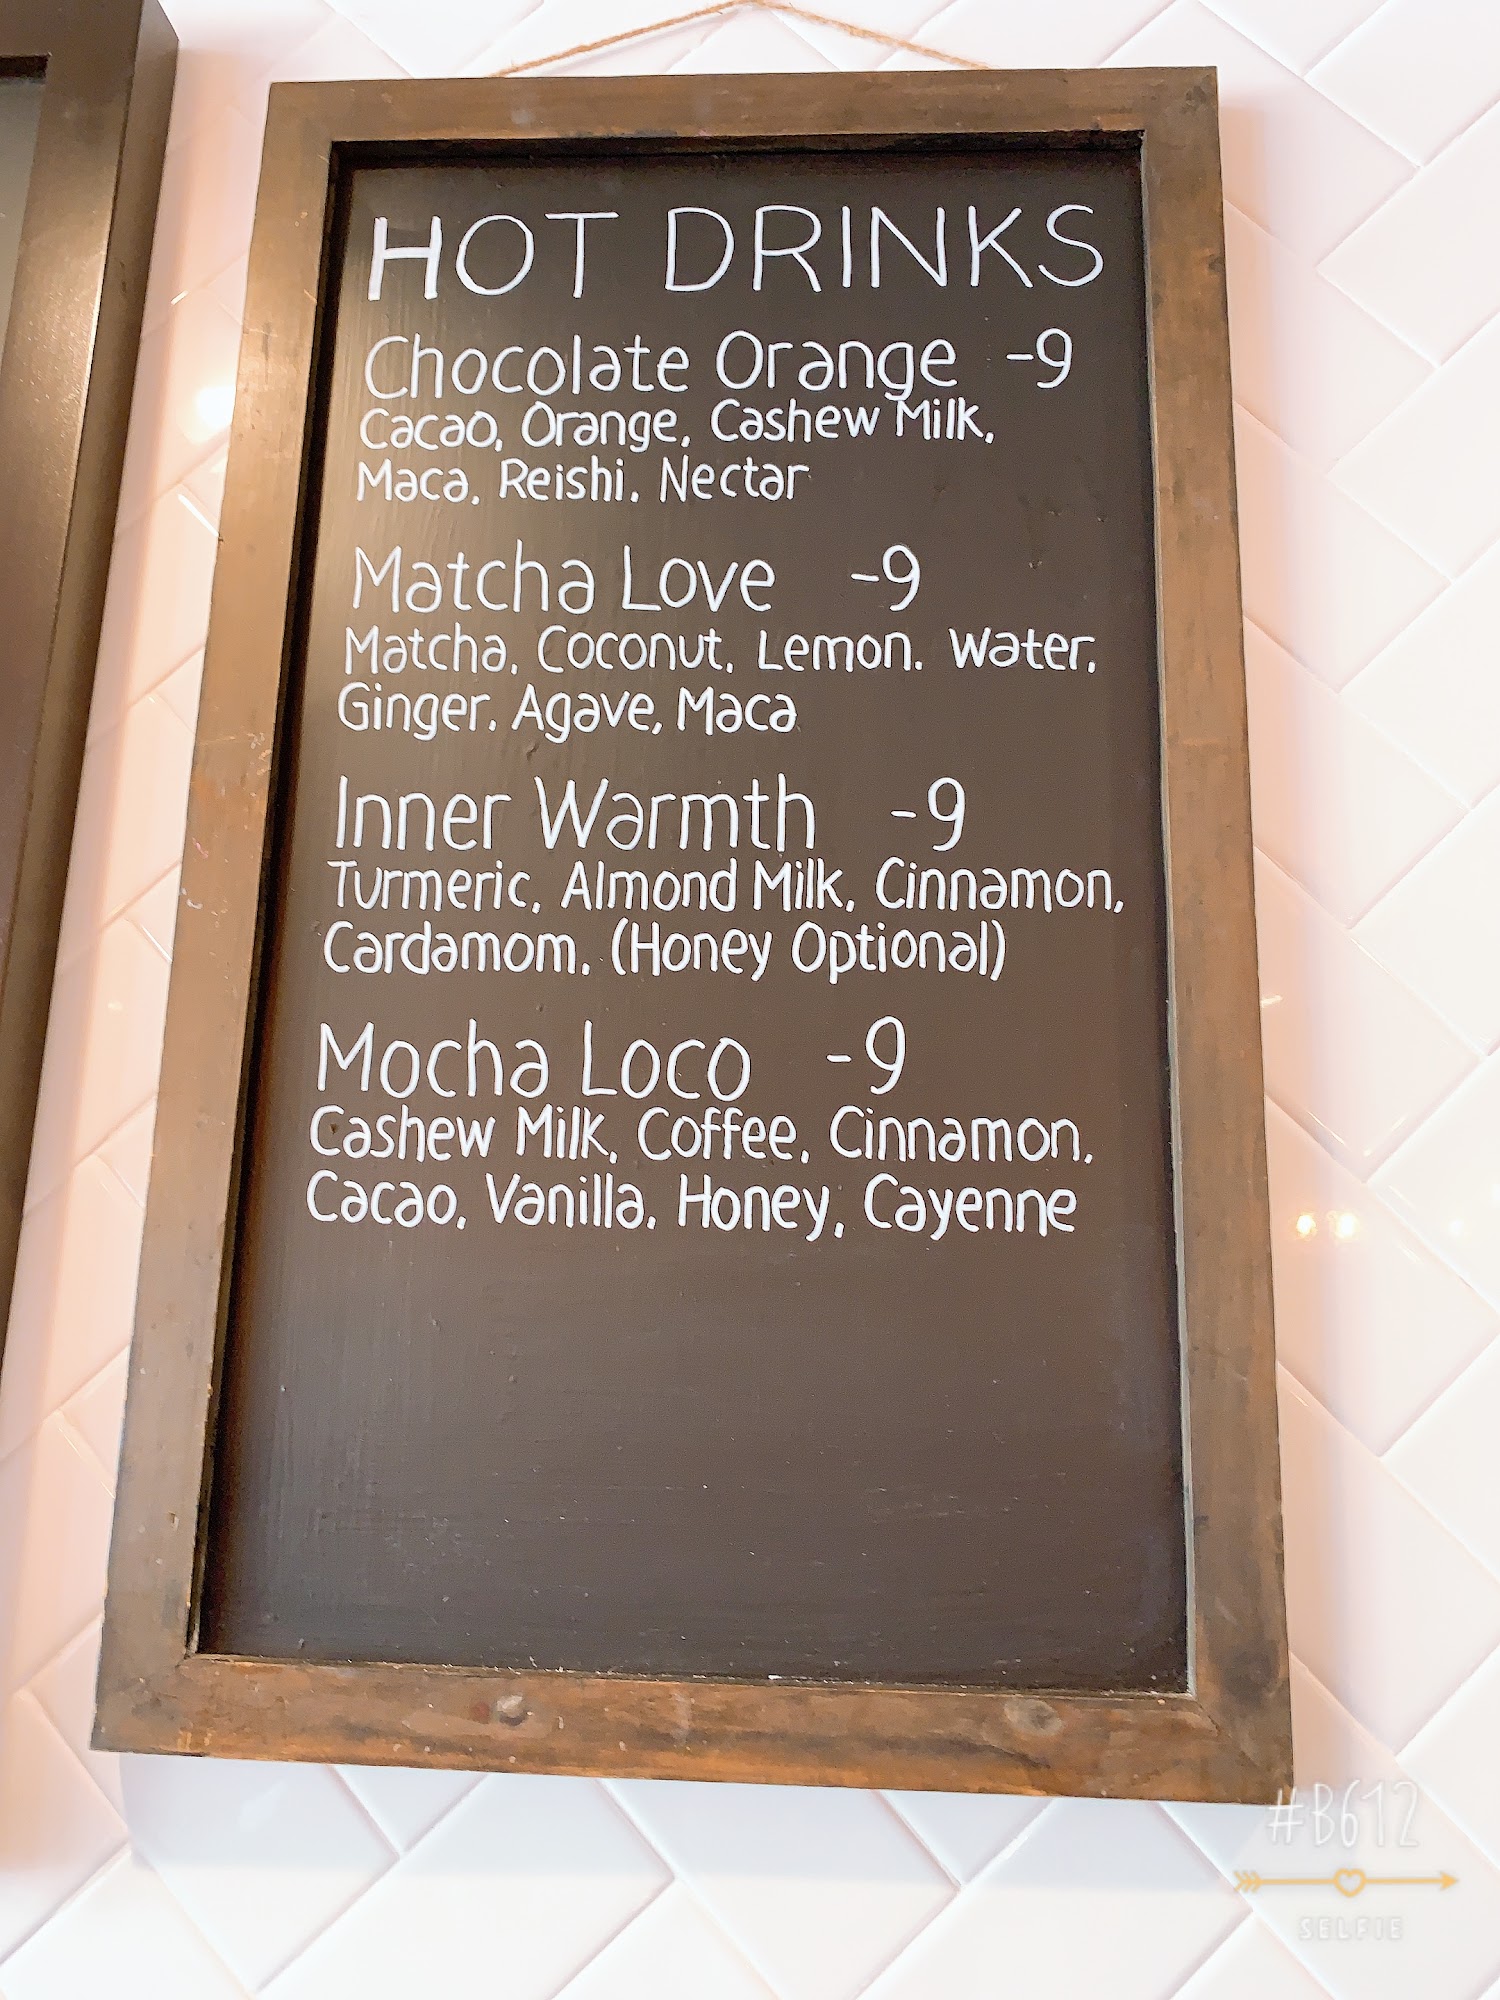 HOT DRINKS
Chocolate Orange -9
Cacao, Orange, Cashew Milk,
Maca, Reishi, Nectar
Matcha Love -9
Matcha, Coconut, Lemon. Water,
Ginger, Agave, Maca
Inner Warmth -9
Turmeric, Almond Milk, Cinnamon,
Cardamom, (Honey Optional)
Mocha Loco -9
Cashew Milk, Coffee, Cinnamon,
Cacao, Vanilla, Honey, Cayenne
#B612
SELFIE